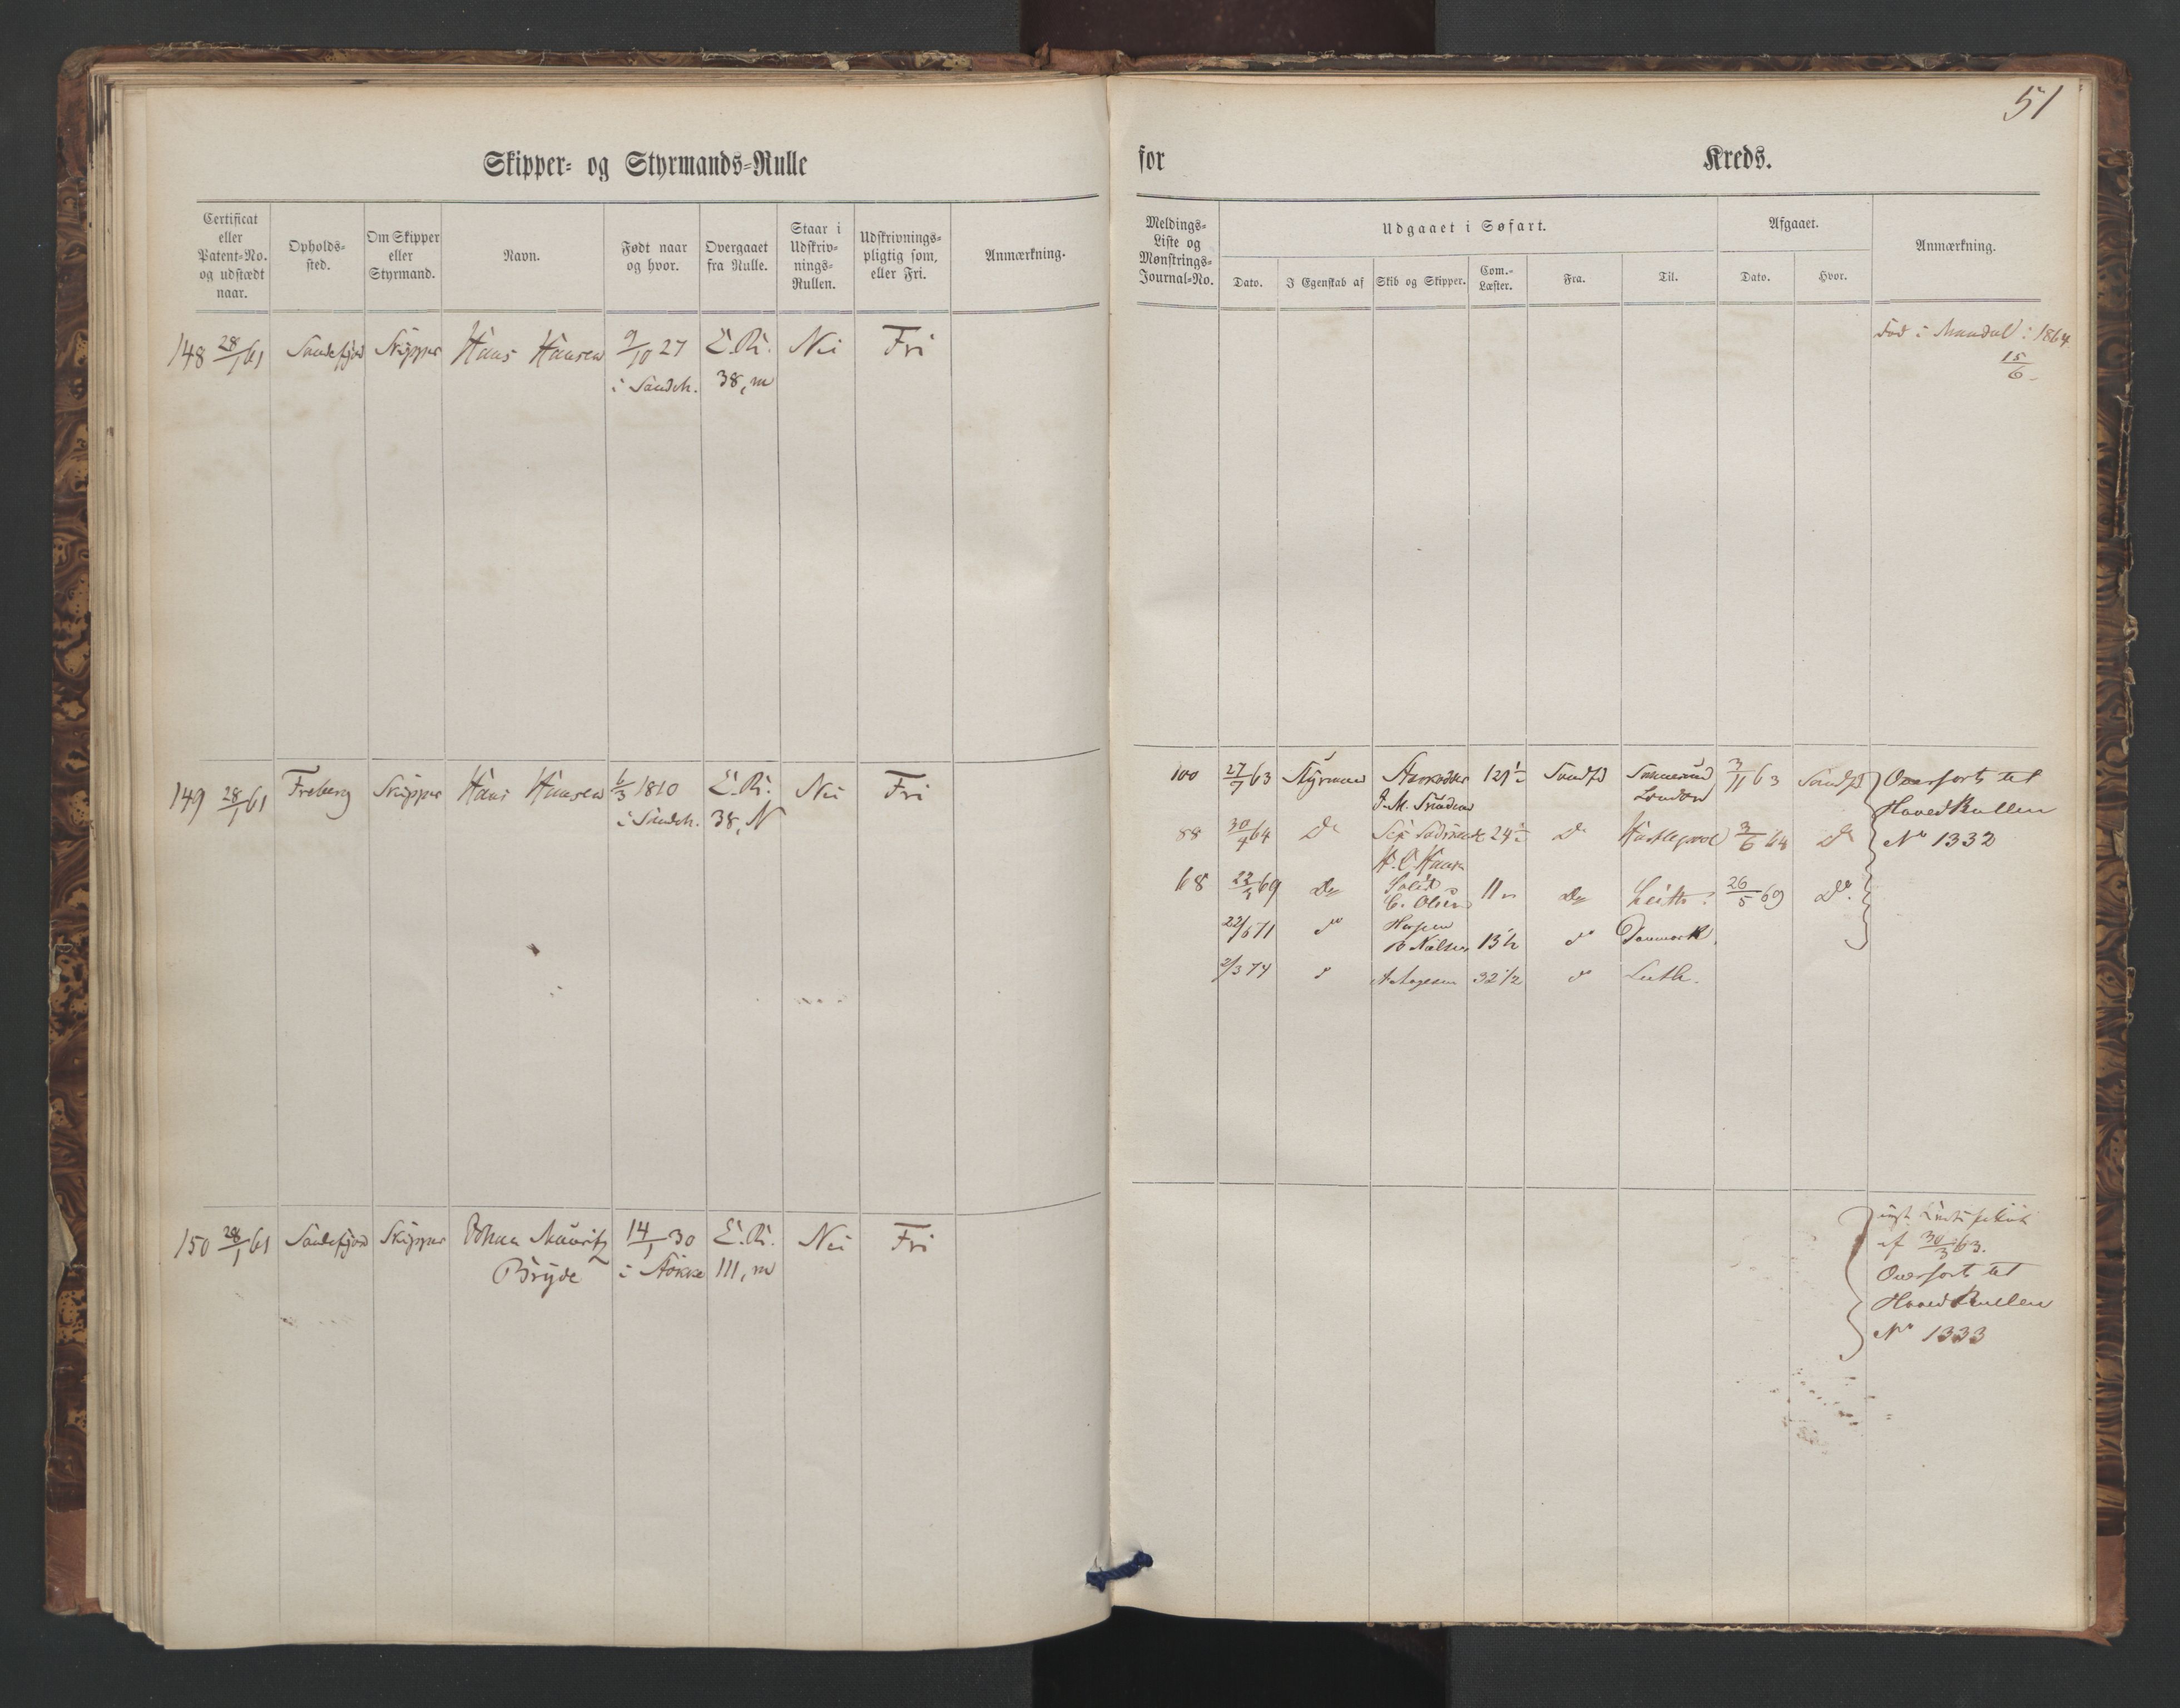 51
Skipper- og Styrmands-Rulle
for Kreds.
Certificat eller Patent-No. og udstædt naar.
Opholds-sted.
Om Skipper eller Styrmand.
Navn.
Født naar og hvor.
Overgaaet fra Rulle.
Staar i Udskriv-nings-Rullen.
Udskrivnings-pligtig som, eller Fri.
Anmærkning.
Meldings-Liste og Mønstrings-Journal-No.
Udgaaet i Søfart.
Dato.
I Egenskab af
Skib og Skipper.
Com.-Læster.
Fra.
Til.
Afgaaet.
Dato.
Hvor.
Anmærkning.
148 28/1 61 Sandefjord Skipper Hans Hansen 9/10 27 E.R. Nei Fri
i Sandeh. 38, m
Død i Mandal i 1864
15/6
149 28/1 61 Freberg Skipper Hans Hansen 6/3 1810 E.R. Nei Fri
i Sandeh. 38, N
100 27/7 63 Styrmand 121 ½ Sandfd London 3/11 63 Sandfd
88 30/4 64 Do 24 Do Hartlepool 3/6 64 Do
68 69 Do C. Olsen 11 Do Leith 26/5 69 Do
22/6 71 do B Nielsen 13½ do Danmark
2/3 74 do 32½ do Leith.
Overført til
HovedRullen
No 1332
150 28/1 61 Sandefjord Skipper Johan Mauritz 14/1 30 E.R. Nei Fri
Bryde i Stokke 111, m
af 30/3 63.
Overført til
HovedRullen
No 1333